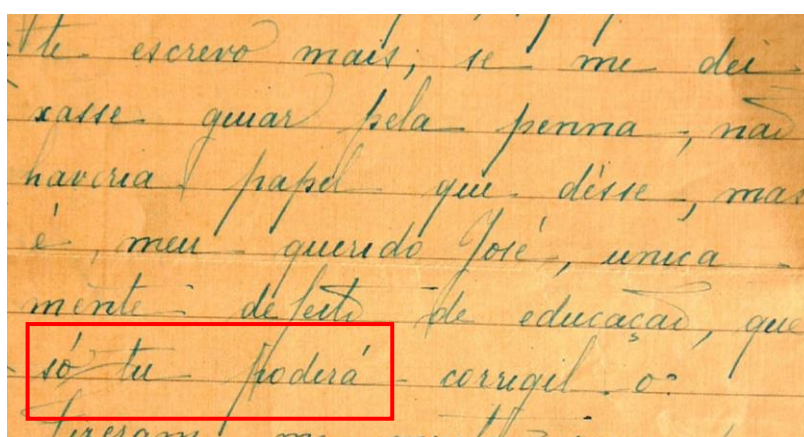 te escrevo mais, se me dei
xasse guiar pela penna, não
haveria papel que désse, mas
é, meu querido José, unica -
mente defeito de educação, que
só tu poderá corregil-o:
me